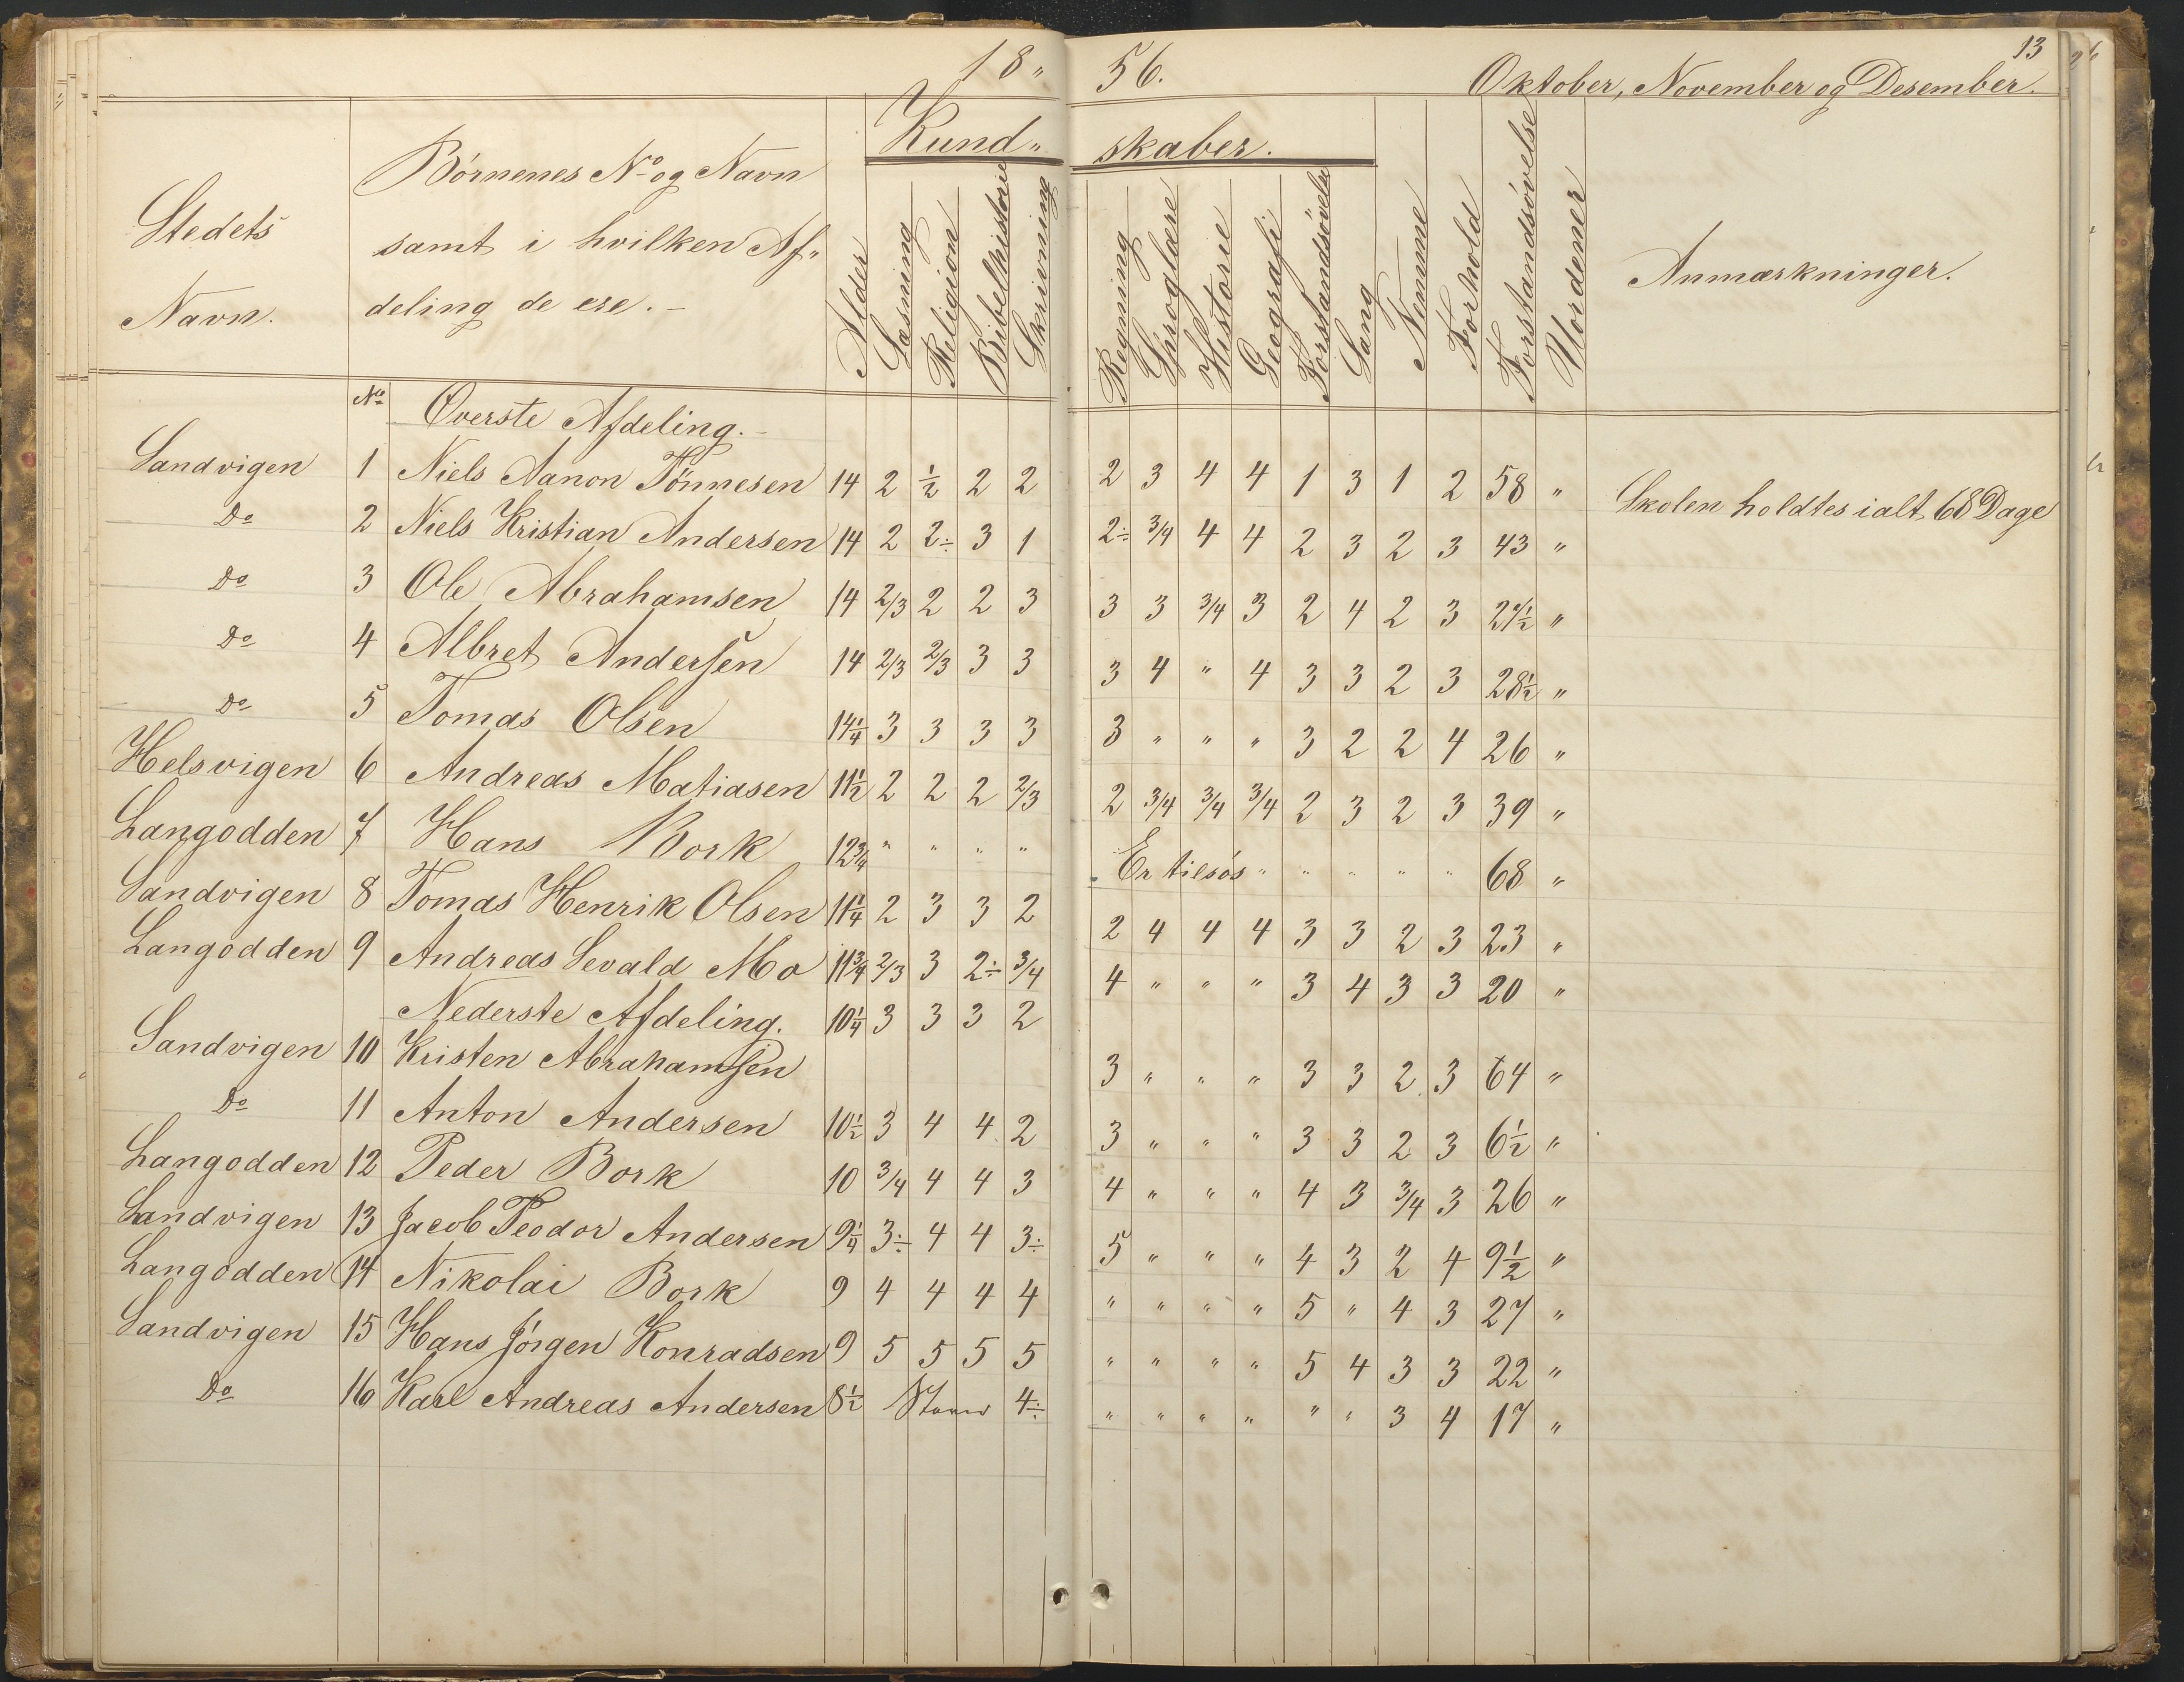 18 „ 56.
13
Oktober, November og Desember.
Kund„ skaber.
Stedets
Navn.
Börnenes No og Navn
samt i hvilken Af„
deling de ere. –
Alder
Læsning
Religion
Bibelhistorie
Skrivning
Regning
Sproglære
Historie
Geografi
Forstandsövelse
Sang
Nemme
Forhold
Forstandsövelse
Uordener
Anmærkninger.
No Øverste Afdeling. –
Sandvigen 1 Niels Aanon Tönnesen 14 2 ½ 2 2 2 3 4 4 1 3 1 2 58 „ Skolen holdtes ialt 68 Dage
Do 2 Niels Kristian Andersen 14 2 2÷ 3 1 2÷ 3/4 4 4 2 3 2 3 43 „
Do 3 Ole Abrahamsen 14 2/3 2 2 3 3 3 3/4 3 2 4 2 3 21½ „
Do 4 Albret Andersen 14 2/3 2/3 3 3 3 4 „ 4 3 3 2 3 28½ „
Do 5 Tomas Olsen 14¼ 3 3 3 3 3 „ „ „ 3 2 2 4 26 „
Helsvigen 6 Andreas Matiasen 11½ 2 2 2 2/3 2 3/4 3/4 3/4 2 3 2 3 39 „
Langodden 7 Hans Bork 12¾ „ „ „ „ Er tilsös „ „ „ „ „ 68 „
Sandvigen 8 Tomas Henrik Olsen 11¼ 2 3 3 2 2 4 4 4 3 3 2 3 23 „
Langodden 9 Andreas Sevald Mo 11¾ 2/3 3 2÷ 3/4 4 „ „ „ 3 4 3 3 20 „
Nederste Afdeling. 10¼ 3 3 3 2
Sandvigen 10 Kristen Abrahamsen 3 „ „ „ 3 3 2 3 64 „
Do 11 Anton Andersen 10½ 3 4 4 2 3 „ „ „ 3 3 2 3 6½ „
Langodden 12 Peder Bork 10 3/4 4 4 3 4 „ „ „ 4 3 3/4 3 26 „
Sandvigen 13 Jacob Teodor Andersen 9¼ 3÷ 4 4 3÷ 5 „ „ „ 4 3 2 4 9½ „
Langodden 14 Nikolai Bork 9 4 4 4 4 „ „ „ „ 5 „ 4 3 27 „
Sandvigen 15 Hans Jörgen Konradsen 9 5 5 5 5 „ „ „ „ 5 4 3 3 22 „
Do 16 Karl Andreas Andersen 8½ 4÷ „ „ „ „ „ „ 3 4 17 „